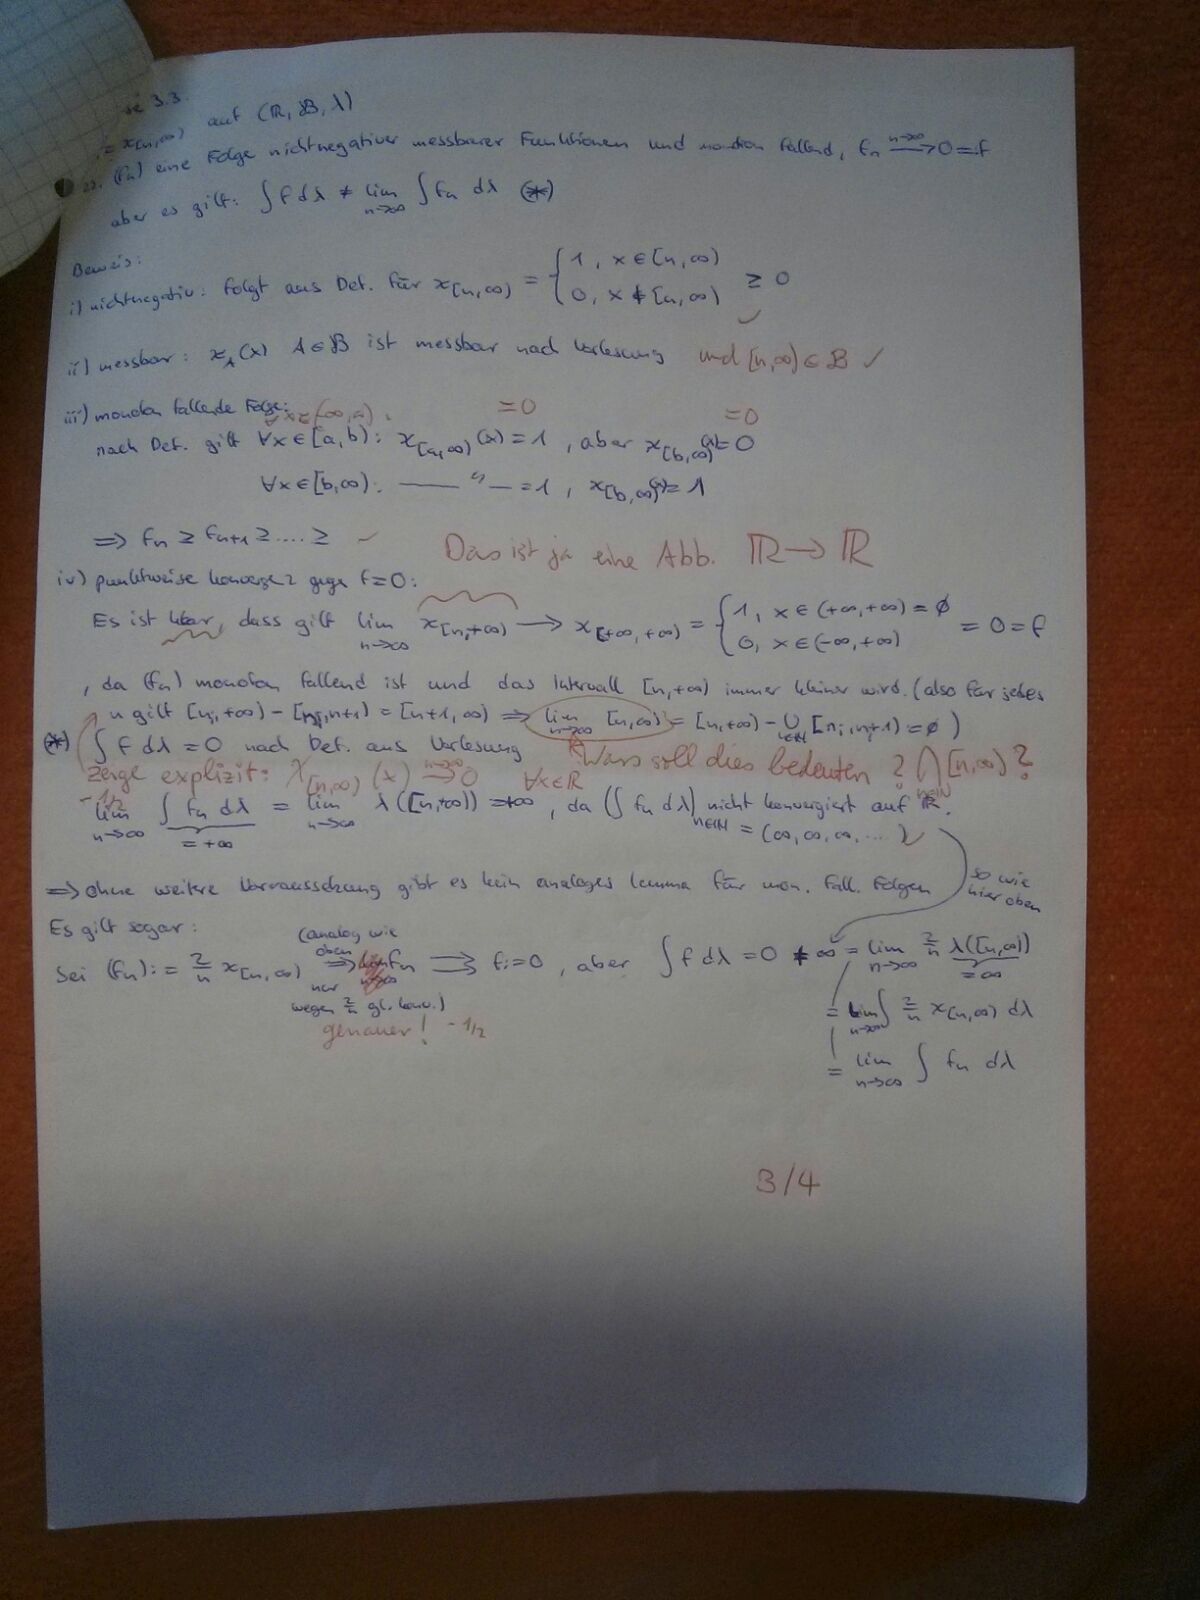 3.3.
= χ[n,∞) auf (ℝ, 𝓑, λ)
(fn) eine Folge nichtnegativer messbarer Funktionen und monoton fallend, fn →(n→∞) 0 = f
aber es gilt: ∫ f dλ ≠ lim n→∞ ∫ fn dλ (*)
Beweis:
i) nichtnegativ: folgt aus Def. für χ[n,∞) = { 1, x ∈ [n,∞) ; 0, x ∉ [n,∞) ≥ 0 ✓
ii) messbar: χA(x) A ∈ 𝓑 ist messbar nach Vorlesung und [n,∞) ∈ 𝓑 ✓
iii) monoton fallende Folge:
∀x∈(-∞,a): =0 =0
nach Def. gilt ∀x ∈ [a,b): χ[a,∞)(x) = 1, aber χ[b,∞)(x) = 0
∀x ∈ [b,∞): —— " — = 1, χ[b,∞)(x) = 1
⟹ fn ≥ fn+1 ≥ .... ≥ ✓
Das ist ja eine Abb. ℝ → ℝ
iv) punktweise konvergenz gegen f=0:
Es ist klar, dass gilt lim n→∞ χ[n,+∞) → χ[+∞,+∞) = { 1, x ∈ (+∞,+∞) = ∅ ; 0, x ∈ (-∞,+∞) = 0 = f
, da (fn) monoton fallend ist und das Intervall [n,+∞) immer kleiner wird. (also für jedes
n gilt [n,+∞) - [n,n+1) = [n+1,∞) ⟹ lim n→∞ [n,∞) = [n,+∞) - ∪ n∈ℕ [n,n+1) = ∅ )
(*) ∫ f dλ = 0 nach Def. aus Vorlesung
Was soll dies bedeuten? ∩ n∈ℕ [n,∞)?
zeige explizit: χ[n,∞)(x) →(n→∞) 0 ∀x∈ℝ
-1/2
lim n→∞ ∫ fn dλ (= +∞) = lim n→∞ λ([n,+∞)) = +∞, da (∫ fn dλ) n∈ℕ nicht konvergiert auf ℝ.
= (∞, ∞, ∞, ...) ✓
⟹ ohne weitere Vorraussetzung gibt es kein analoges Lemma für mon. fall. Folgen
so wie hier oben
Es gilt sogar:
(analog wie oben
Sei (fn) := 2/n χ[n,∞) ⟹ fn ⇉ f:=0, aber ∫ f dλ = 0 ≠ ∞ = lim n→∞ 2/n λ([n,∞)) (= ∞)
nur wegen 2/n gl. konv.)
= lim n→∞ ∫ 2/n χ[n,∞) dλ
genauer! -1/2
= lim n→∞ ∫ fn dλ
3/4